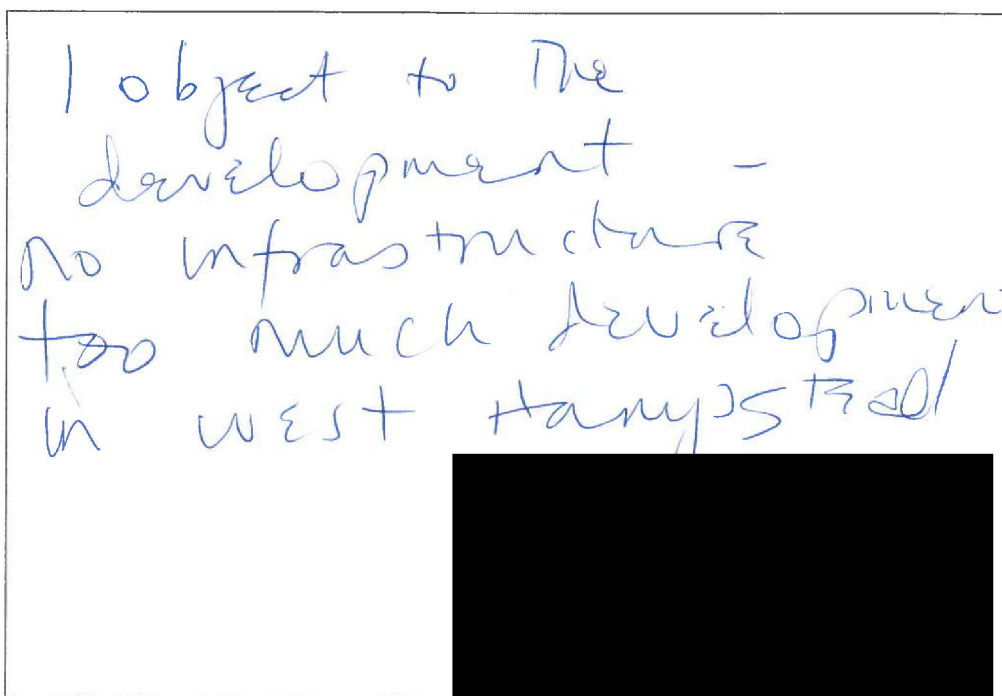 I object to the
development -
no infrastructure
too much development
in west Hampstead